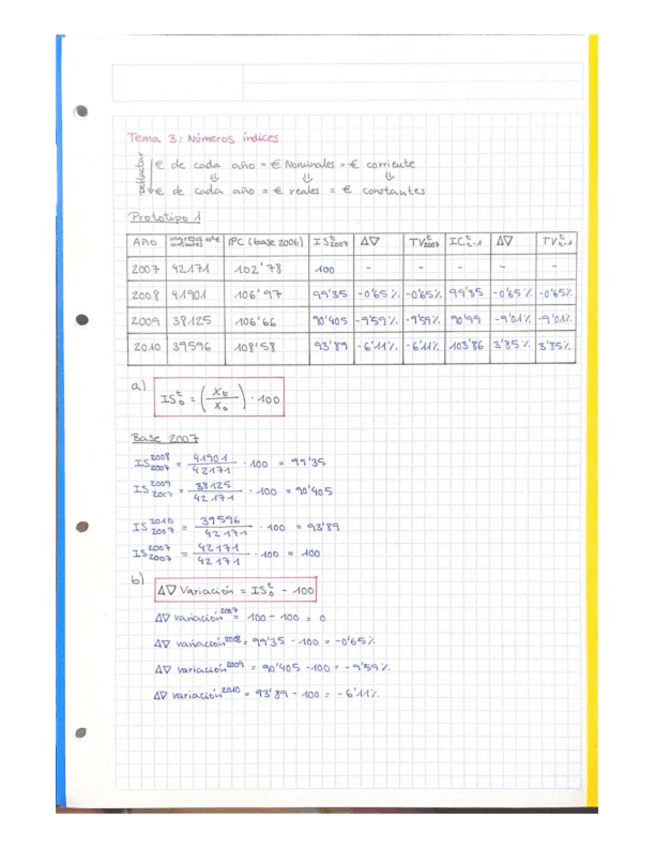 Tema 3: Números índices
deflactar
€ de cada año = € Nominales = € corriente
⇓ ⇓ ⇓
€ de cada año = € reales = € constantes
Prototipo 1
Año | ingresos | IPC (base 2006) | IS^t_2007 | Δ∇ | TV^t_2007 | IC^t_t-1 | Δ∇ | TV^t_t-1
2007 | 42171 | 102'78 | 100 | - | - | - | - | -
2008 | 41901 | 106'97 | 99'35 | -0'65% | -0'65% | 99'35 | -0'65% | -0'65%
2009 | 38125 | 106'66 | 90'405 | -9'59% | -9'59% | 90'99 | -9'01% | -9'01%
2010 | 39596 | 108'58 | 93'89 | -6'11% | -6'11% | 103'86 | 3'85% | 3'85%
a) IS^t_0 = (X_t / X_0) · 100
Base 2007
IS^2008_2007 = 41901 / 42171 · 100 = 99'35
IS^2009_2007 = 38125 / 42171 · 100 = 90'405
IS^2010_2007 = 39596 / 42171 · 100 = 93'89
IS^2007_2007 = 42171 / 42171 · 100 = 100
b) Δ∇ Variación = IS^t_0 - 100
Δ∇ variación^2007 = 100 - 100 = 0
Δ∇ variación^2008 = 99'35 - 100 = -0'65%
Δ∇ variación^2009 = 90'405 - 100 = -9'59%
Δ∇ variación^2010 = 93'89 - 100 = -6'11%